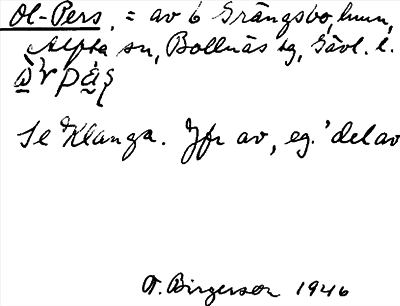 Ol-Pers, = av 6 Grängsbo, hmn,
Alfta sn, Bollnäs tg, Gävl. l.
Se Klanga. Jfr av, eg. 'del av
T. Birgerson 1946